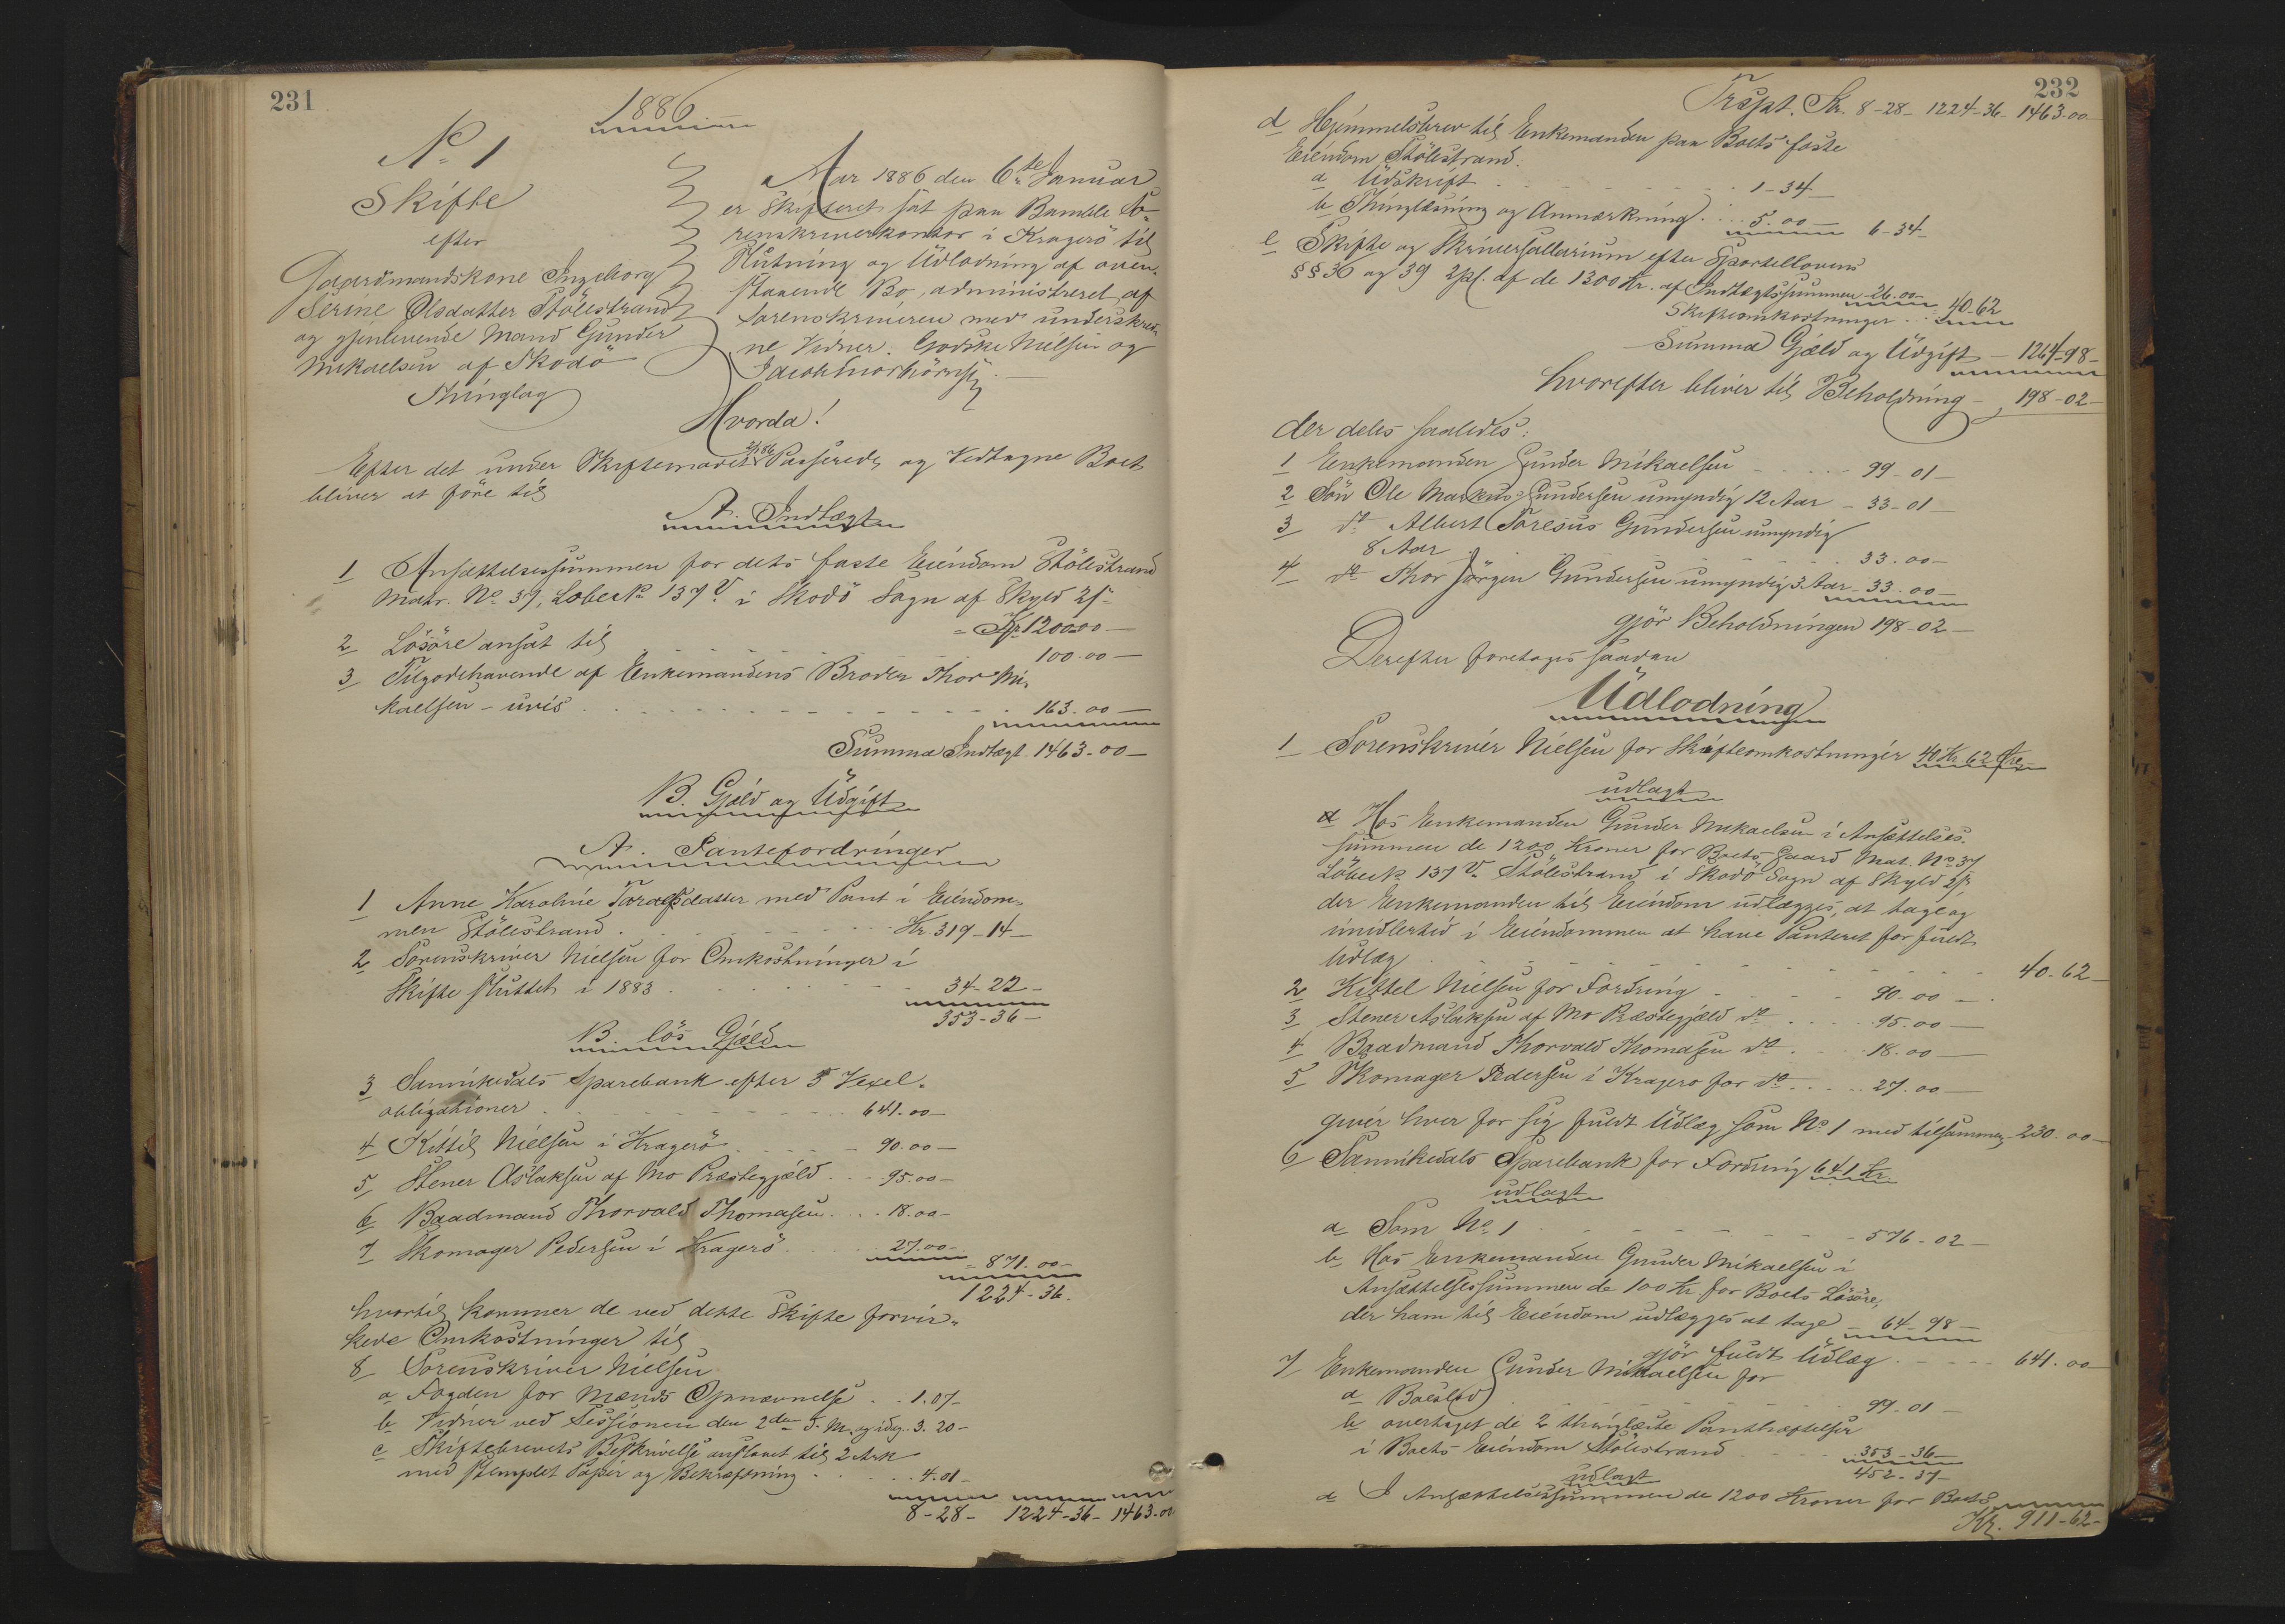 231
1886
No 1
Skifte
efter
Gaardmandskone Ingeborg
Serine Olsdatter Stölestrand
og gjenlevende Mand Gunder
Mikaelsen af Skodö
Thinglag
Aar 1886 den 6te Januar
er Skifteret sat paa Bamble So-
renskriverkontor i Kragerö til
Slutning og Udlodning af oven-
staaende Bo, administreret af
Sorenskriveren med underskrev-
ne Vidner: Godske Nielsen og
Hvorda!
Efter det under Skiftemödet Passerede og Vedtagne Boet
bliver at före til
A. Indtægt
1 Ansættelsessummen for dets faste Eiendom Stölestrand
Matr. No 37, Löbe No 137 V. i Skodö Sogn af Skyld
= Kr. 1200.00 -
2 Lösöre ansat til 100.00 -
3 Tilgodehavende af Enkemandens Broder Thor Mi-
kaelsen - uvis . . . 163.00 -
Summa Indtægt 1463-00 -
B. Gjæld og Udgift
A. Pantefordringer
1 Anne Karoline Taraldsdatter med Pant i Eiendom-
men Stölestrand . . . Kr. 319-14 -
2 Sorenskriver Nielsen for Omkostninger i
Skifte sluttet i 1883 . . . 34-22 -
353-36 -
B. lös Gjæld
3 Sannikedals Sparebank efter 5 Vexel-
obligationer . . . 641.00 -
4 Kittil Nielsen i Kragerö . . . 90.00 -
5 Stener Aslaksen af Mo Præstegjæld . . 95.00 -
6 Baadmand Thorvald Thomasen . . . 18.00 -
7 Skomager Pedersen i Kragerö . . . 27.00 -
= 871.00 -
1224-36.
hvortil kommer de ved dette Skifte forvir-
kede Omkostninger til
8 Sorenskriver Nielsen
a Fogden for Mænds Opnævnelse . . 1.07 -
b Vidner ved Sessionen den 2den d. M. og idag 3.20 -
c Skiftebrevets Beskrivelse anslaaet til 2 Ark
med stemplet Papir og Bekræftning . . . 4.01 -
8-28 - 1224-36 - 1463-00
232
Trspt. Kr. 8-28 - 1224-36 - 1463.00 -
d Hjemmelsbrev til Enkemanden paa Boets faste
Eiendom Stölestrand.
a Udskrift . . . 1-34 -
b Thinglæsning og Anmærkning . . . 5.00 - 6-34 -
e Skifte og Skriversallarium efter Sportellovens
§§ 36 og 39 2 pCt. af de 1300 Kr. af Indtægtssummen 26.00 -
Skifteomkostninger . . = 40-62
Summa Gjæld og Udgift - 1264-98 -
hvorefter bliver til Beholdning - 198-02 -
der deles saaledes:
1 Enkemanden Gunder Mikaelsen . . . 99-01 -
2 Sön Ole Markus Gundersen umyndig 12 Aar - 33-01 -
3 do Albert Toresus Gundersen umyndig
8 Aar . . . 33.00 -
4 do Thor Jörgen Gundersen umyndig 3 Aar - 33.00 -
gjör Beholdningen 198-02 -
Derefter foretages saadan
Udlodning
1 Sorenskriver Nielsen for Skifteomkostninger 40 Kr. 62 Öre
udlagt
a Hos Enkemanden Gunder Mikaelsen i Ansættelses-
summen de 1200 Kroner for Boets Gaard Mat. No 37
Löbe No 137 V. Stölestrand i Skodö Sogn af Skyld
der Enkemanden til Eiendom udlægges, at tage og
imidlertid i Eiendommen at have Panteret for fuldt
Udlæg . . . 40-62 -
2 Kittel Nielsen for Fordring . . . 90-00 -
3 Stener Aslaksen af Mo Præstegjæld do . . . 95.00 -
4 Baadmand Thorvald Thomasen do . . . 18.00 -
5 Skomager Pedersen i Kragerö for do . . . 27.00 -
giver hver for sig fuldt Udlæg som No 1 med tilsammen 230.00 -
6 Sannikedals Sparebank for Fordring 641 Kr.
udlagt
a Som No 1 . . . 576-02 -
b Hos Enkemanden Gunder Mikaelsen i
Ansættelsessummen de 100 Kr for Boets Lösöre,
der ham til Eiendom udlægges at tage - 64-98 -
gjör fuldt Udlæg . . . 641.00 -
7 Enkemanden Gunder Mikaelsen for
a Boeslod . . . 99.01 -
b overtaget de 2 thinglæste Panthæftelser
i Boets Eiendom Stölestrand . . . 353-36 -
452-37 -
udlagt
a I Ansættelsessummen de 1200 Kroner for Boets
Kr. 911-62 -